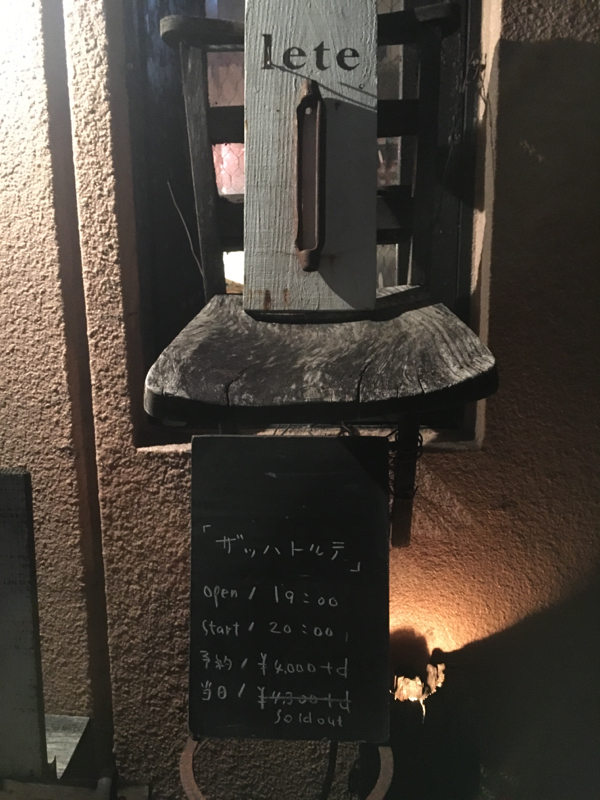 lete
「ザッハトルテ」
open / 19:00
Start / 20:00
予約 / ¥4,000+d
当日 / ¥4,500+d
Sold out